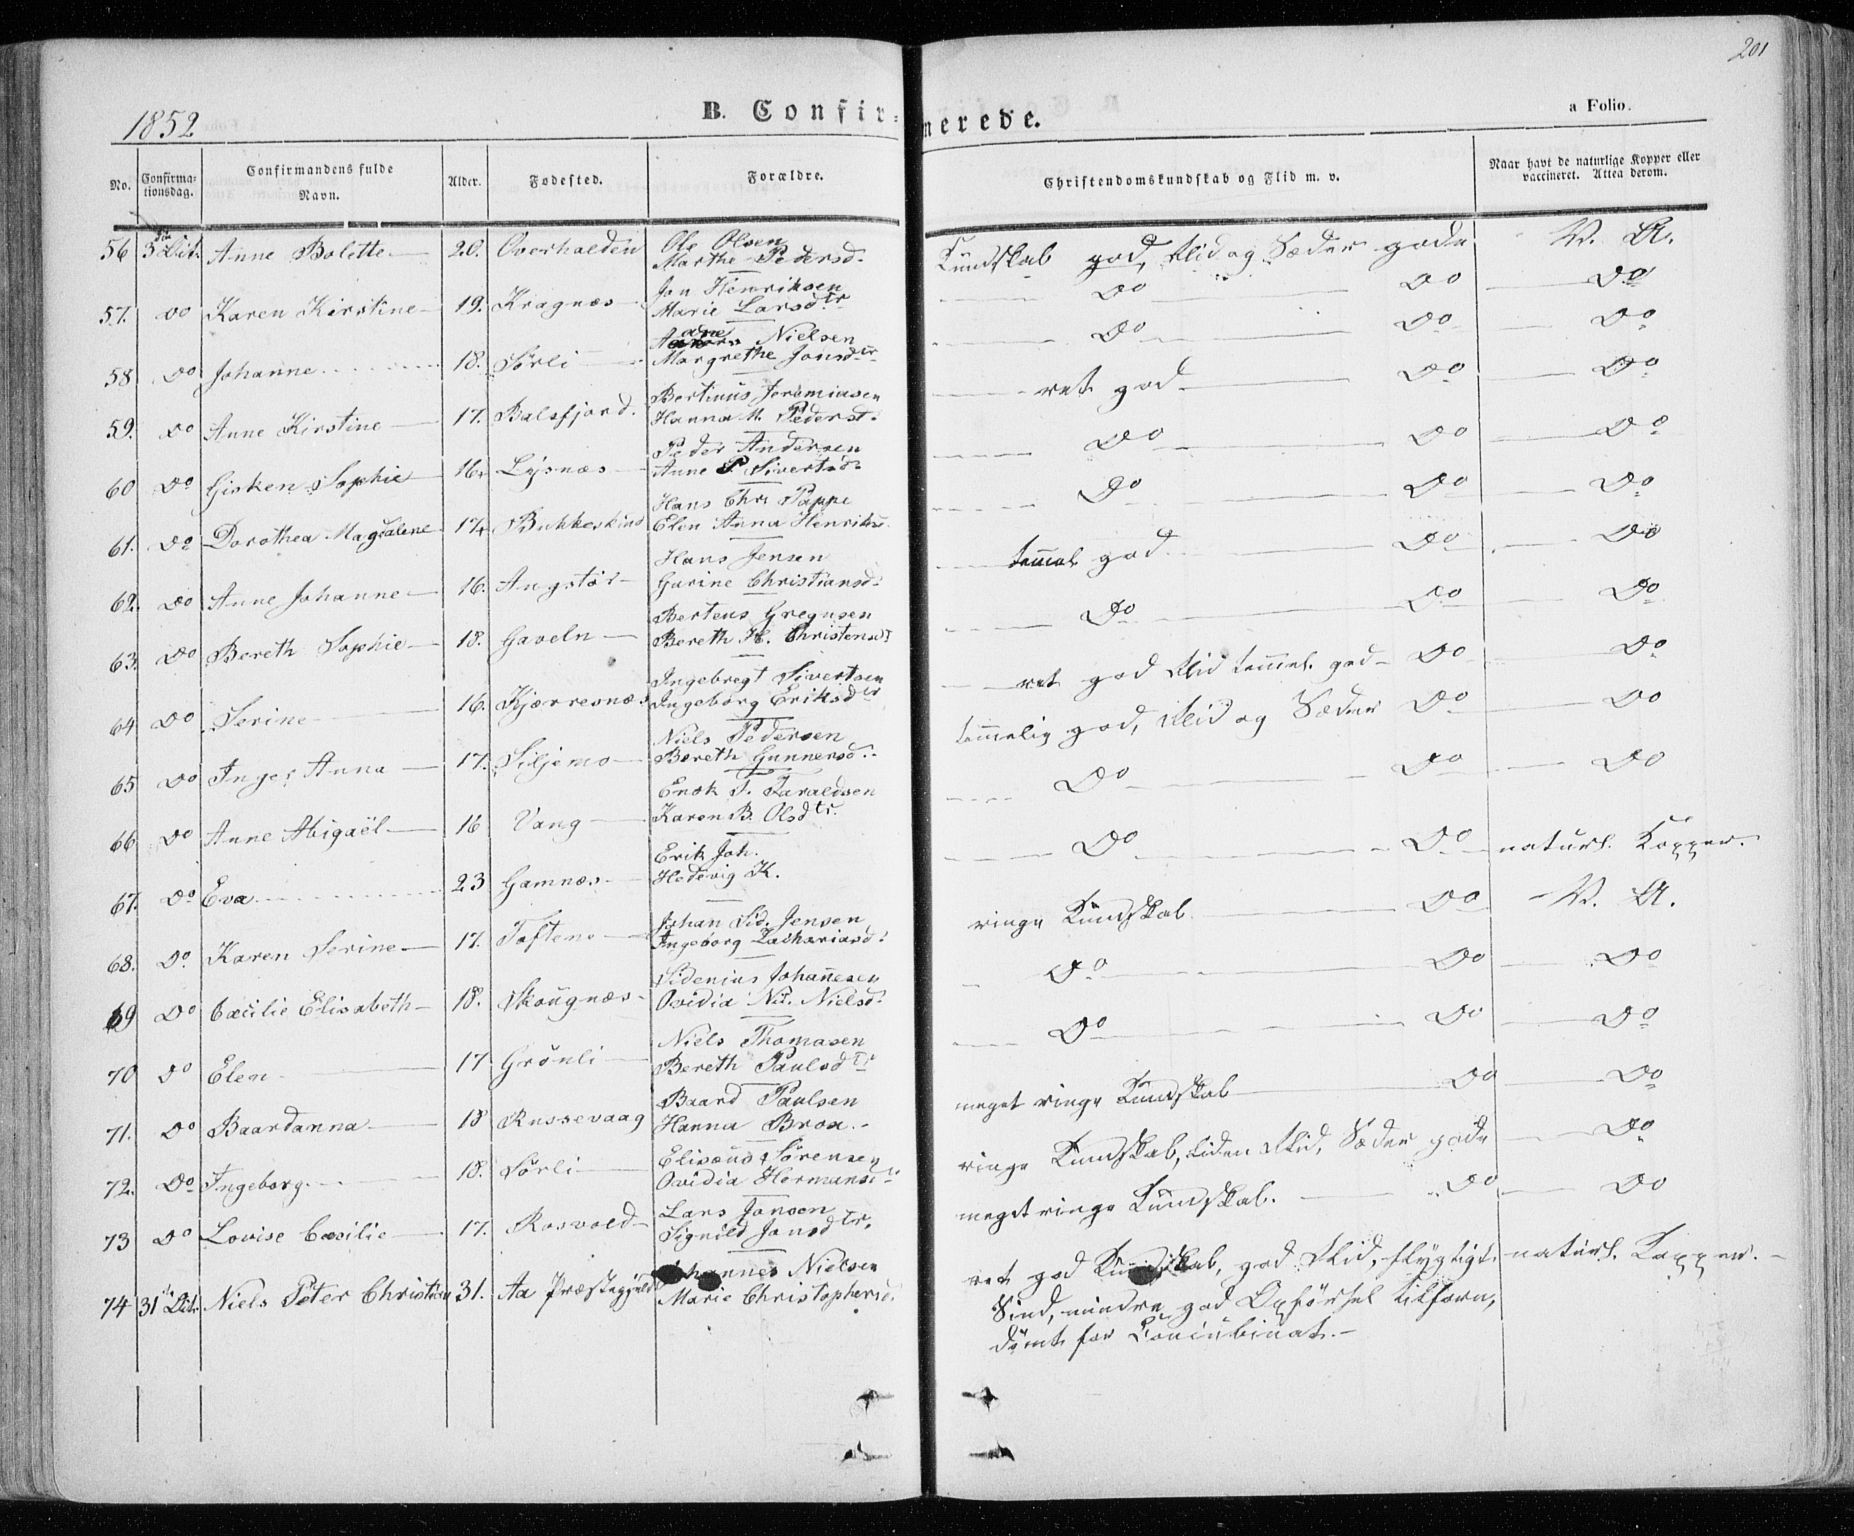 201
1852
B. Confir-
merede.
a Folio.
No.
Confirma-
tionsdag.
Confirmandens fulde
Navn.
Alder.
Fødested.
Forældre.
Christendomskundskab og Flid m. v.
Naar havt de naturlige Kopper eller
vaccineret. Attea derom.
Ole Olsen
56 Anne Bolette 20. Overhalden Marthe Pedersd. Kundskab god, Flid og Sæder gode V. A.
Jon Henriksen
57. Do Karen Kirstine 19. Kragnæs Marie Larsdtr Do Do Do
Nielsen
58 Do Johanne 18. Sørli Margrethe Jonsdtr Do Do Do
Bertinus Jeremiasen
59. Do Anne Kirstine 17. Balsfjord. Hanna M. Pedersd. ret god Do Do
Peder Andersen
60 Do Gisken Sophie 16. Lysnæs Anne P Sivertsd. Do Do Do
Hans Chr. Pappe
61. Do Dorothea Magdalene 17. Elen Anna Henriks. Do Do Do
Hans Jensen
62. Do Anne Johanne 16. Angstør Garine Christiansd. temmel. god Do Do
Berteus Gregusen
63. Do Bereth Sophie 18. Gaveln Bereth H. Christensd. Do Do Do
Ingebregt Sivertsen
64 Do Serine 16. Kjærresnæs Ingeborg Eriksdtr ret god Flid temmel. god Do Do
Niels Pedersen
65 Do Inger Anna 17. Siljemo Bereth Gunnersd. temmelig god, Flid og Sæder Do Do
Enok T. Taraldsen
66 Do Anne Abigaël 16 Vang Karen B. Olsdtr. Do Do Do
Erik Joh.
67. Do Eva 23 Gamnæs Hedevig K. Do Do naturl. Kopper.
Johan Sid. Jensen
68. Do. Karen Serine 17. Toftene Ingeborg Zachariasd. ringe Kundskab Do V. A.
Sidenius Johannesen
69 Do Cæcilie Elisabeth 18. Skougnæs Ovidia Nielsd. Do Do Do
Niels Thomasen
70 Do Elen 17 Grönli Bereth Paulsdtr Do Do Do
Baard Paulsen
71. Do Baardanna 18 Russevaag Hanna Brox. meget ringe Kundskab Do Do
Elisæus Sørensen
72. Do Ingeborg 18. Sørli Ovidia Hermansd. ringe Kundskab, liden Flid, Sæder gode Do
Lars Jonsen
73 Do Lovise Cæcilie 17. Rosvold Signild Jonsdtr. meget ringe Kundskab. Do Do
Johannes Nielsen ret god Kundskab, god Flid, flygtigt naturl. Kopper.
74 31 Niels Peter Christian 31. Aa Præstegjeld Marie Christophersd. Sind, mindre god Opførsel tilforn,
dømt for Concubinat.